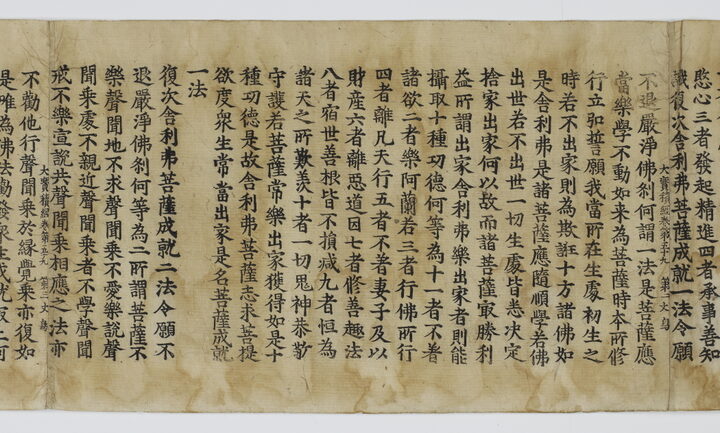 愍心三者發起精進四者承事善知
識復次舍利弗菩薩成就一法令願
大寶積經卷第五十九 第二丈
不退嚴淨佛刹何謂一法是菩薩應
當樂學不動如來為菩薩時本所修
行立弘誓願我當所在生處初生之
時若不出家則為欺誑十方諸佛如
是舍利弗是諸菩薩應隨順學若佛
出世若不出世一切生處皆悉决定
捨家出家何以故而諸菩薩㝡勝利
益所謂出家舍利弗樂出家者則能
攝取十種功德何等為十一者不著
諸欲二者樂阿蘭若三者行佛所行
四者離凡夫行五者不著妻子及以
財產六者離惡道因七者修善趣法
八者宿世善根皆不損減九者恒為
諸天之所歎羨十者一切鬼神恭敬
守護若菩薩常樂出家獲得如是十
種功德是故舍利弗菩薩志求菩提
欲度衆生常當出家是名菩薩成就
一法
復次舍利弗菩薩成就二法令願不
退嚴淨佛刹何等為二所謂菩薩不
樂聲聞地不求聲聞乘不愛樂說聲
聞乘處不親近聲聞乘者不學聲聞
戒不樂宣說共聲聞乘相應之法亦
大寶積經卷第五十九 第三丈
不勸他行聲聞乘於緣覺乘亦復如
是唯為佛法勸發衆生成就